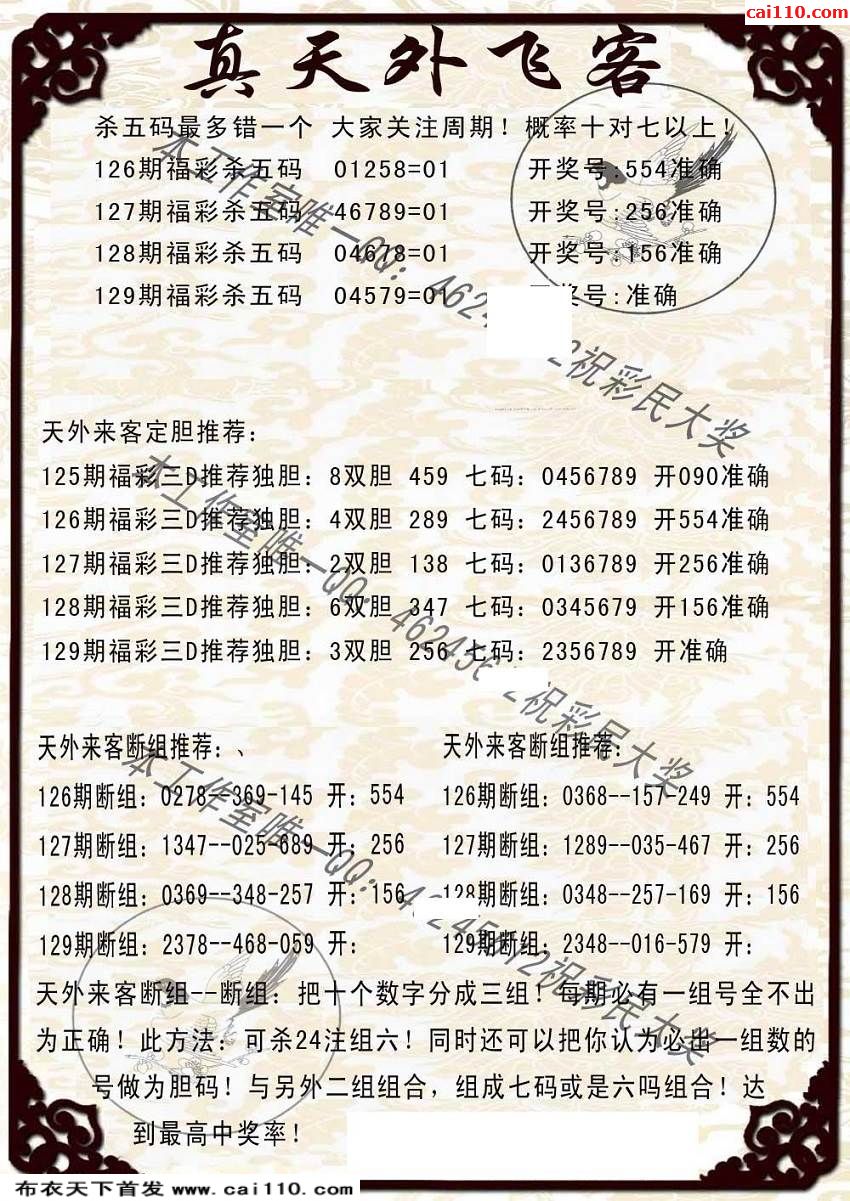 cai110.com
真天外飞客
杀五码最多错一个 大家关注周期！概率十对七以上！
126期福彩杀五码 01258=01 开奖号:554准确
127期福彩杀五码 46789=01 开奖号:256准确
128期福彩杀五码 04678=01 开奖号:156准确
129期福彩杀五码 04579=01 开奖号:准确
天外来客定胆推荐：
125期福彩三D推荐独胆：8双胆 459 七码：0456789 开090准确
126期福彩三D推荐独胆：4双胆 289 七码：2456789 开554准确
127期福彩三D推荐独胆：2双胆 138 七码：0136789 开256准确
128期福彩三D推荐独胆：6双胆 347 七码：0345679 开156准确
129期福彩三D推荐独胆：3双胆 256 七码：2356789 开准确
天外来客断组推荐：、
126期断组：0278--369-145 开：554
127期断组：1347--025-689 开：256
128期断组：0369--348-257 开：156
129期断组：2378--468-059 开：
天外来客断组推荐：
126期断组：0368--157-249 开：554
127期断组：1289--035-467 开：256
128期断组：0348--257-169 开：156
129期断组：2348--016-579 开：
天外来客断组--断组：把十个数字分成三组！每期必有一组号全不出
为正确！此方法：可杀24注组六！同时还可以把你认为必出一组数的
号做为胆码！与另外二组组合，组成七码或是六吗组合！达
到最高中奖率！
本工作室唯一QQ：462 2祝彩民大奖
本工作室唯一QQ：46245 2祝彩民大奖
本工作室唯一QQ：4 2祝彩民大奖
布衣天下首发 www.cai110.com